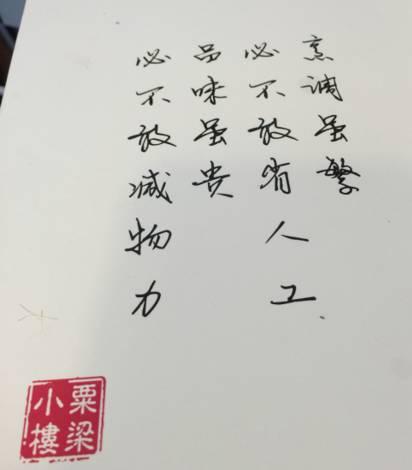 烹调虽繁
必不敢省人工
品味虽贵
必不敢减物力
粟梁
小樓